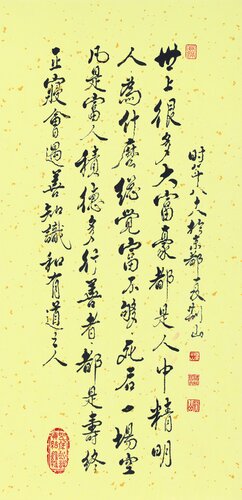 世上很多大富豪都是人中精明
人為什麼總覺富不够死后一場空
凡是富人積德多行善者都是壽終
正寢會遇善知識和有道之人
時年八十八於京都長荊山